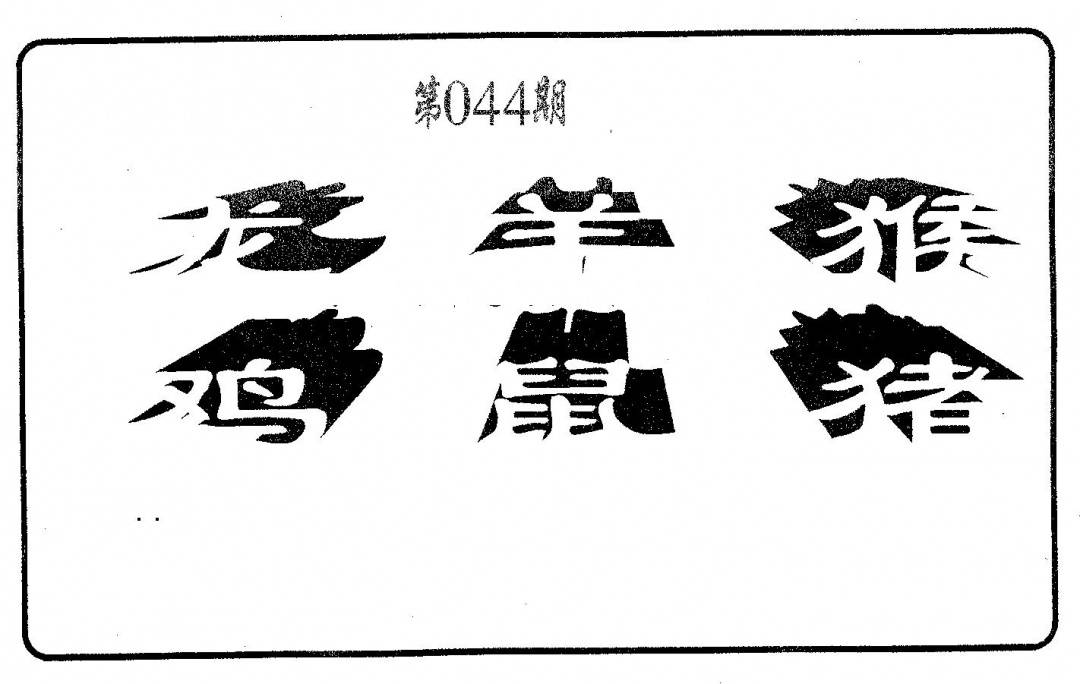 第044期
龙 羊 猴
鸡 鼠 猪